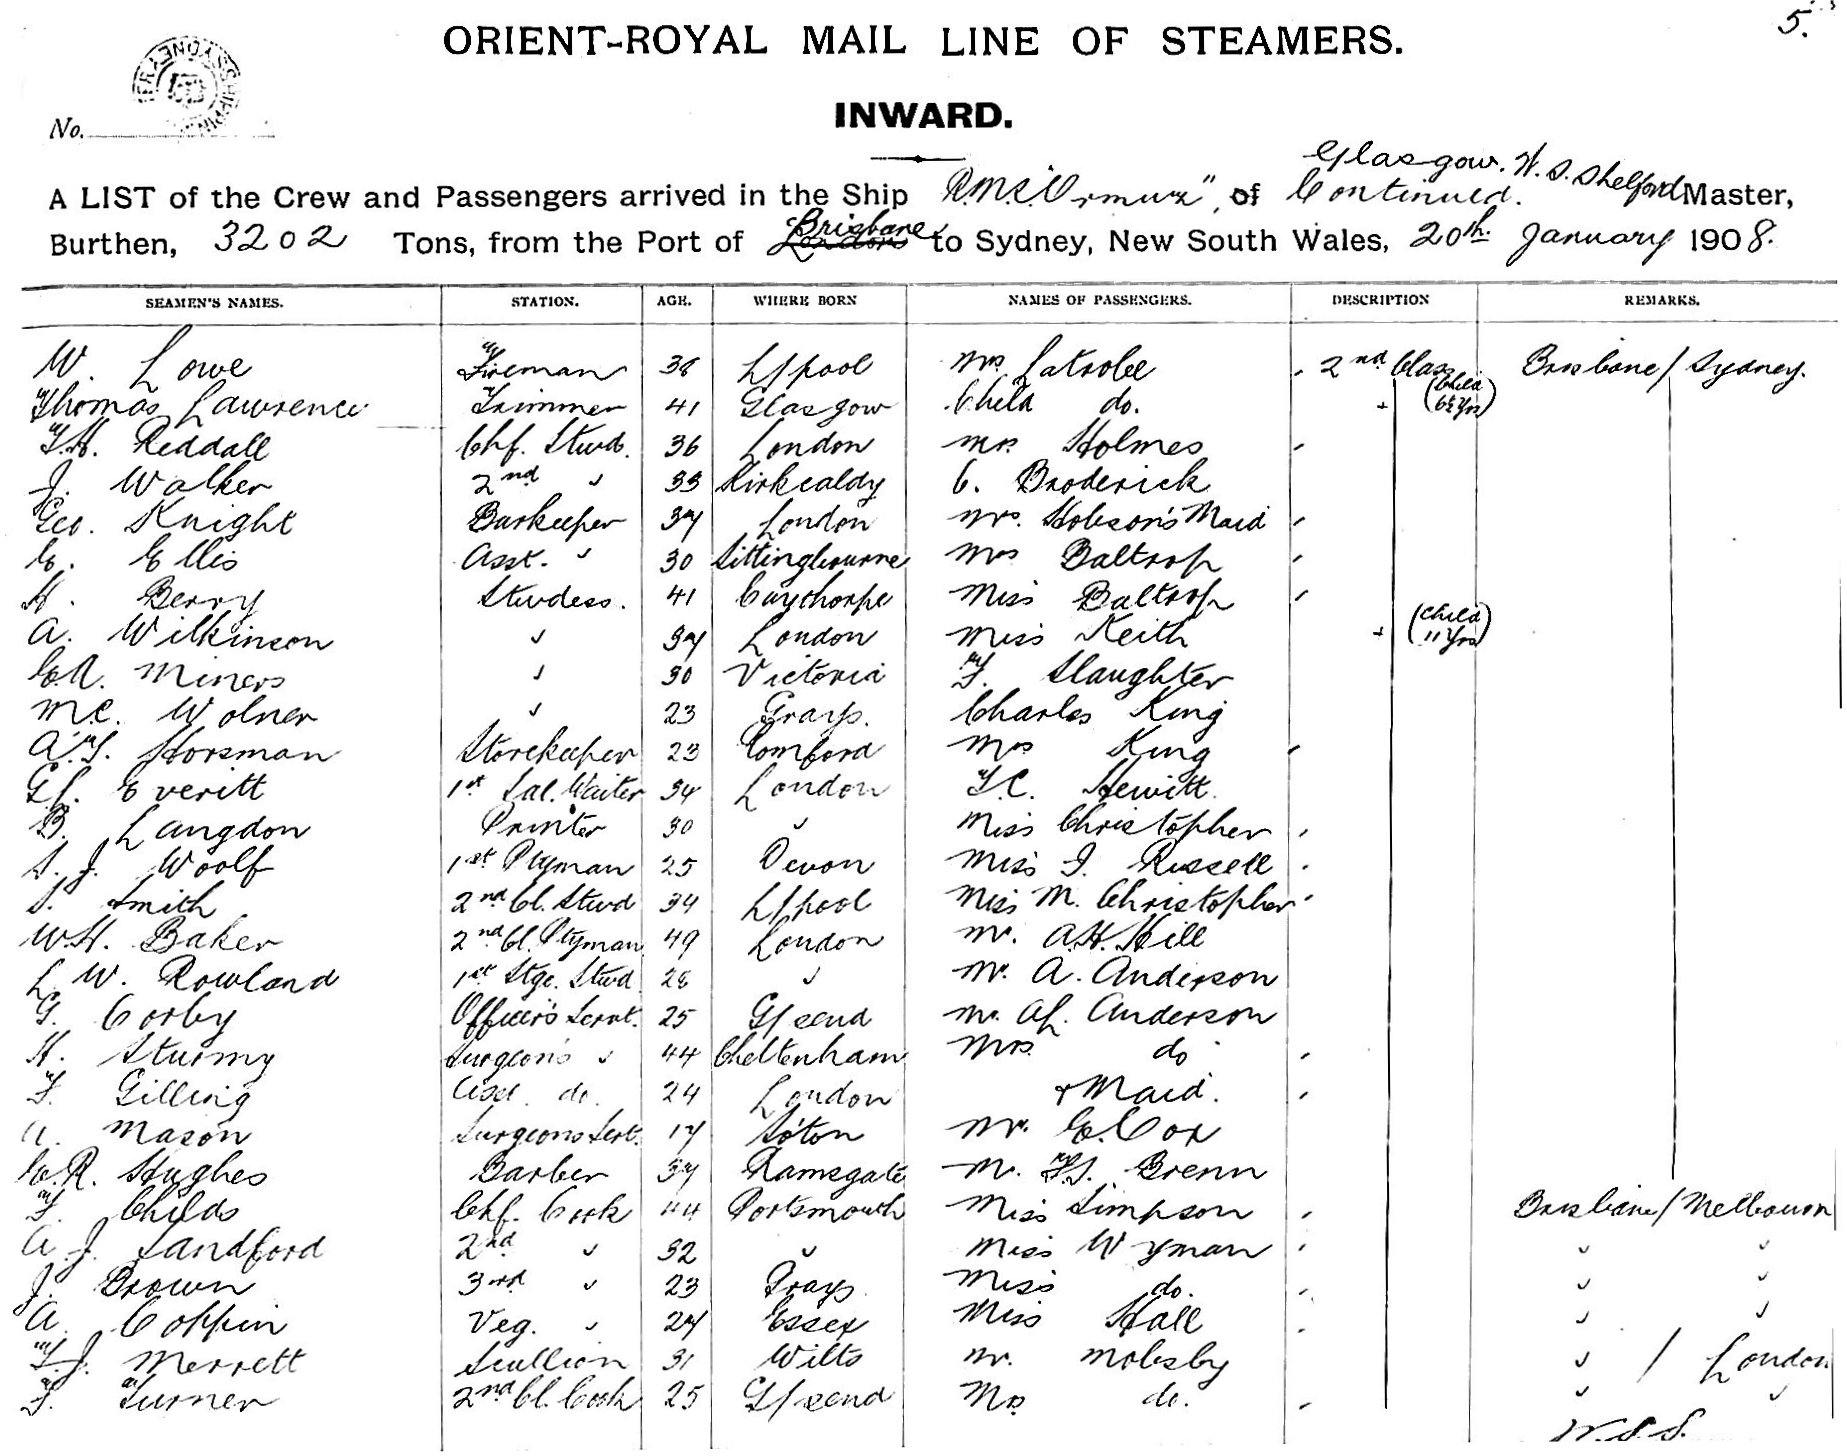 5.
ORIENT-ROYAL MAIL LINE OF STEAMERS.
SYDNEY SHIPPING
INWARD.
No.
Glasgow. W. S. Shelford
A LIST of the Crew and Passengers arrived in the Ship R.M.S. "Ormuz", of Continued. Master,
Brisbane
Burthen, 3202 Tons, from the Port of London to Sydney, New South Wales, 20th January 1908.
SEAMEN'S NAMES. STATION. AGE. WHERE BORN NAMES OF PASSENGERS. DESCRIPTION REMARKS.
W. Lowe Fireman 36 L/pool Mrs Latrobe 2nd Class Brisbane / Sydney.
Thomas Lawrence Trimmer 41 Glasgow Child do. (Child 6½ Yrs)
T.H. Reddall Chf. Stwd. 36 London Mrs. Holmes
J. Walker 2nd " 33 Kirkcaldy C. Broderick
Geo. Knight Barkeeper 37 London Mrs. Hobson's Maid
E. Ellis Asst. " 30 Sittingbourne Mrs Baltrop
H. Berry Stwdess. 41 Caythorpe Miss Baltrop
A. Wilkinson " 37 London Miss Keith (Child 11 Yrs)
E.A. Miners " 30 Victoria F. Slaughter
M.C. Wolner " 23 Grays. Charles King
A.T. Horsman Storekeeper 23 Romford Mrs King
G.L. Everitt 1st Sal. Waiter 34 London T.C. Hewitt.
B. Langdon Printer 30 " Miss Christopher
S. J. Woolf 1st Ptyman 25 Devon Miss I. Russell
S. Smith 2nd Cl. Stwd 34 L/pool Miss M. Christopher
W.H. Baker 2nd Cl. Ptyman 49 London Mr. A.H. Hill
L. W. Rowland 1st Stge. Stwd 28 " Mr. A. Anderson
G. Corby Officer's Servt. 25 G/send Mr. A.L. Anderson
H. Sturmy Surgeon's " 44 Cheltenham Mrs. do
F. Gilling Asst. do. 24 London + Maid.
A. Mason Surgeons Sert. 17 So'ton Mr. E. Cox
E.R. Hughes Barber 37 Ramsgate Mr. F.T. Brenn
F. Childs Chf. Cook 44 Portsmouth Miss Simpson Brisbane / Melbourn
A. J. Sandford 2nd " 32 " Miss Wyman " "
J. Brown 3rd " 23 Grays Miss do. " "
A. Coppin Veg. " 27 Essex Miss Hall " "
T. J. Merrett Scullion 31 Wilts Mr. Mobsby " / London
F. Turner 2nd Cl. Cook 25 G/send Mrs do. " "
W.S.S.